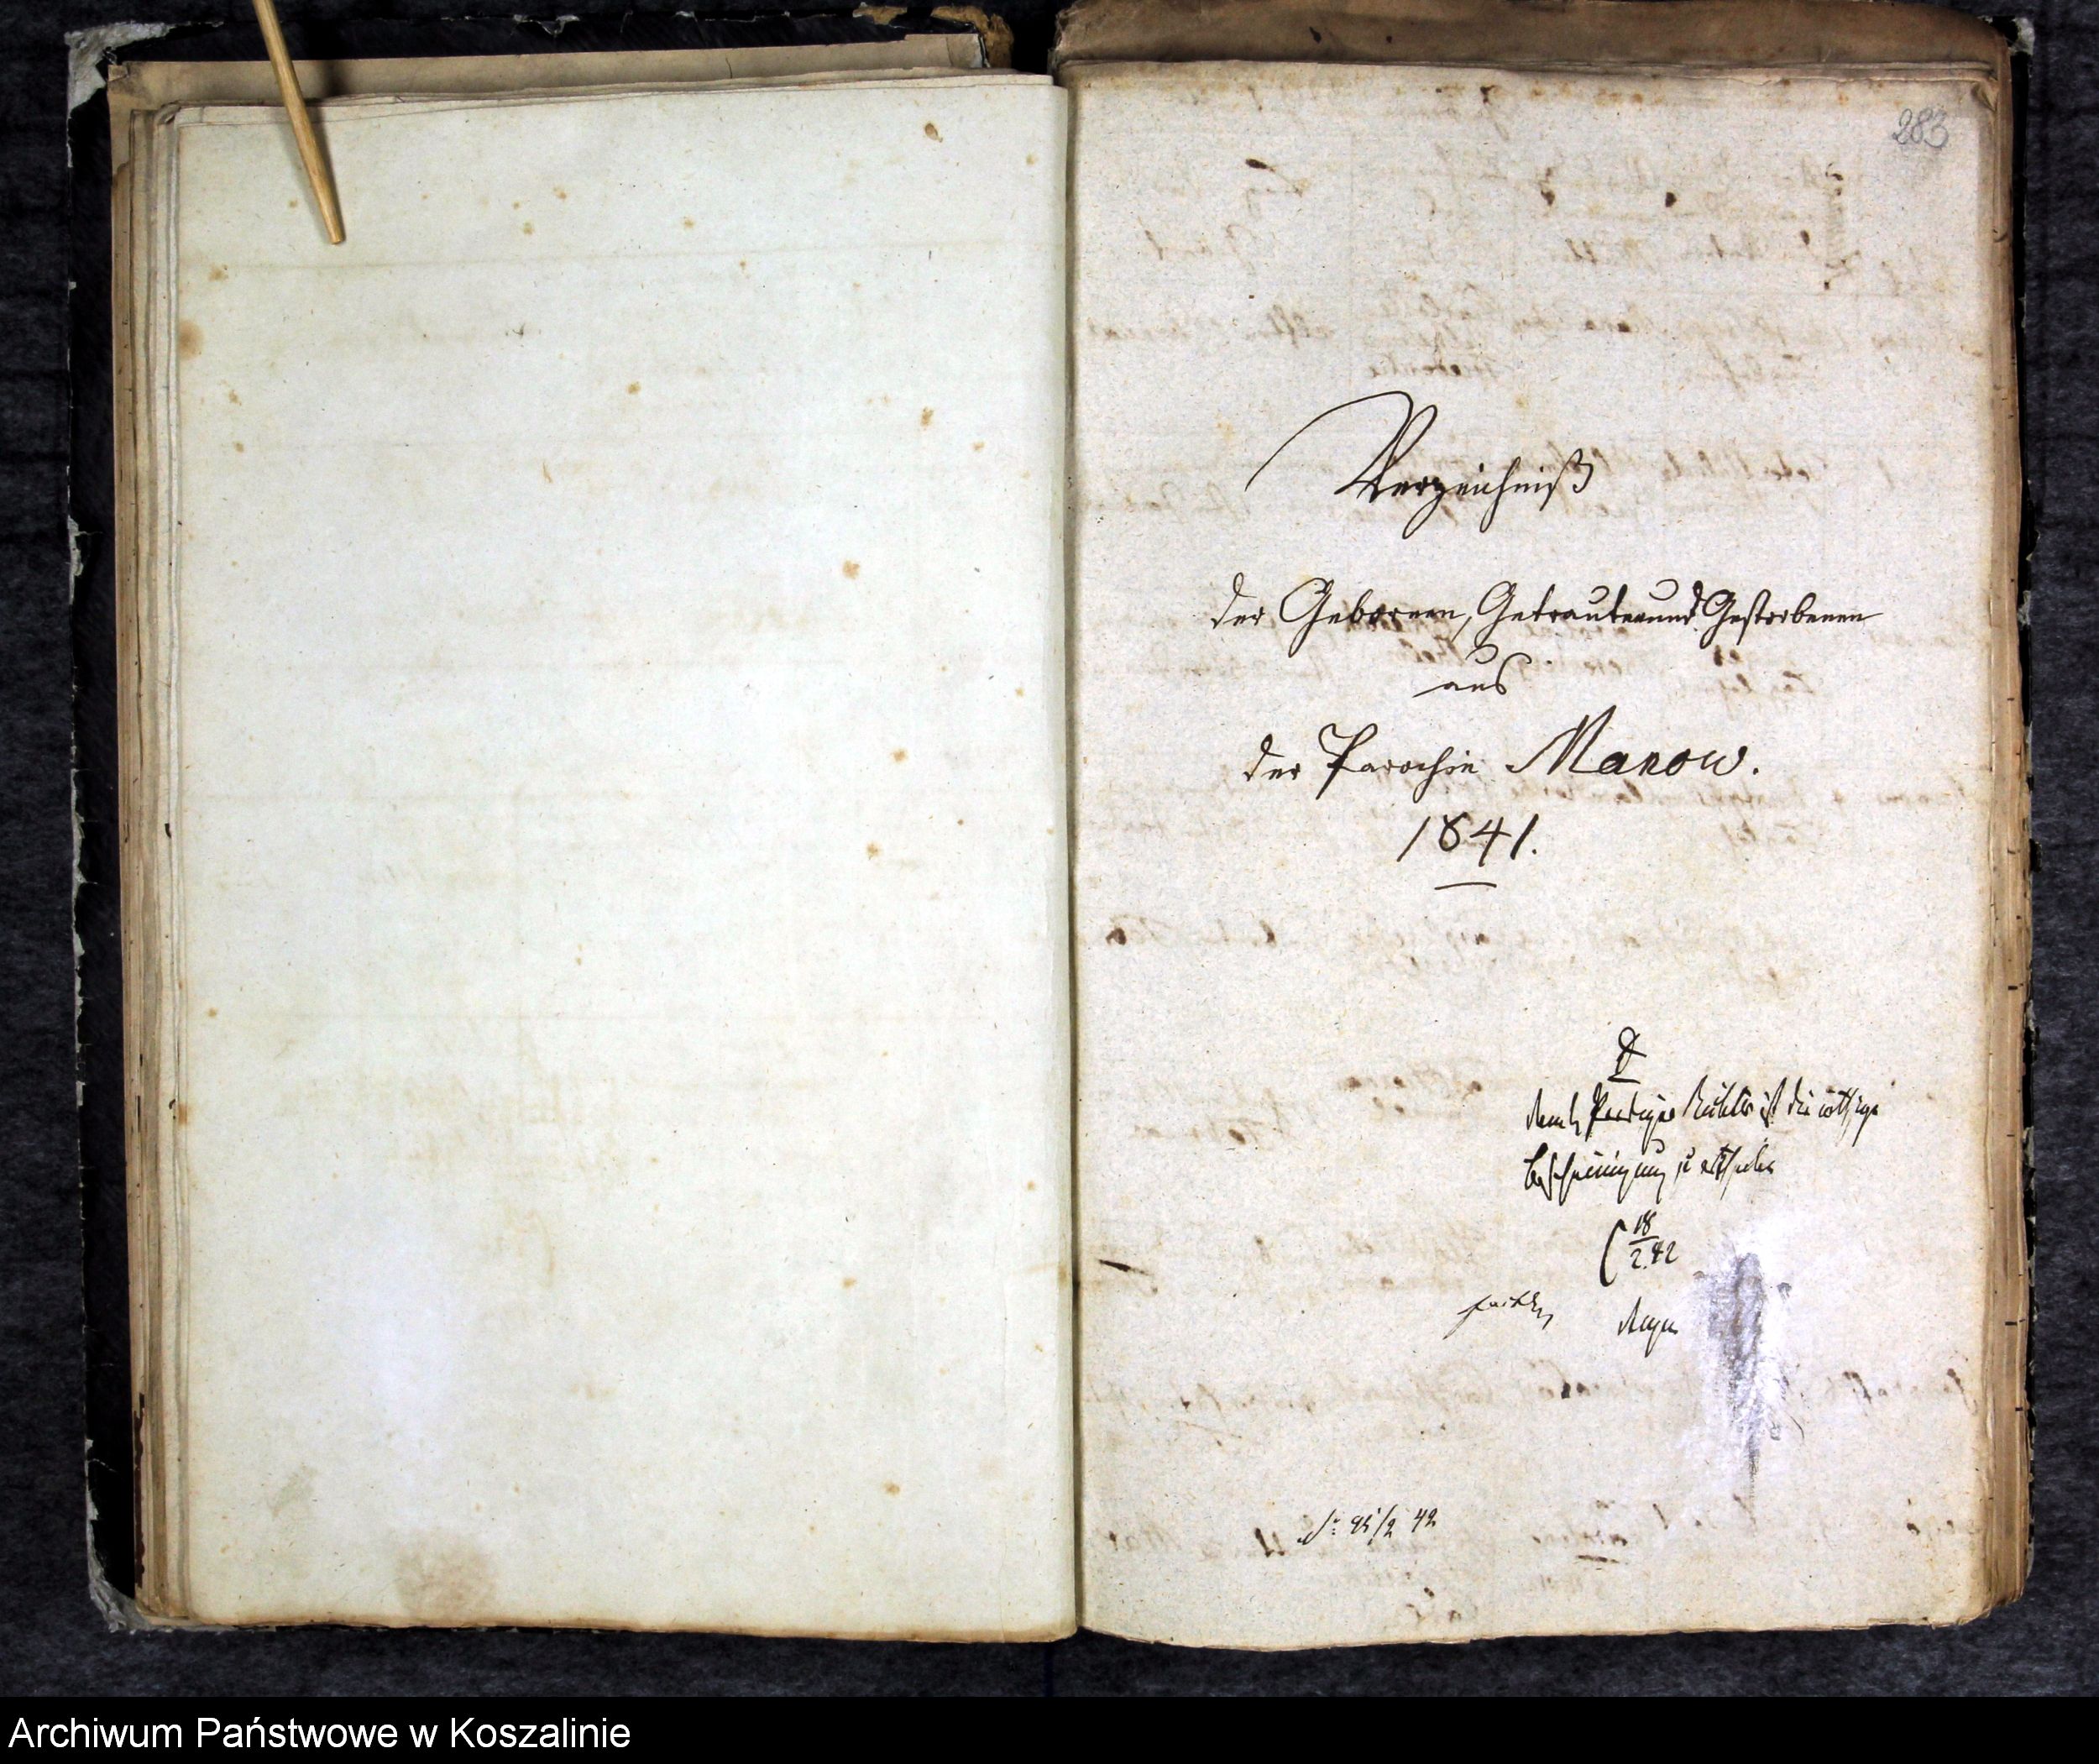 283
Verzeichniß
der Gebornen, Getrauten und Gestorbenen
aus
der Parochie Manow.
1841.
dem Prediger ist die nöthige
Bescheinigung zu ertheilen
18
2.42
42
Archiwum Państwowe w Koszalinie